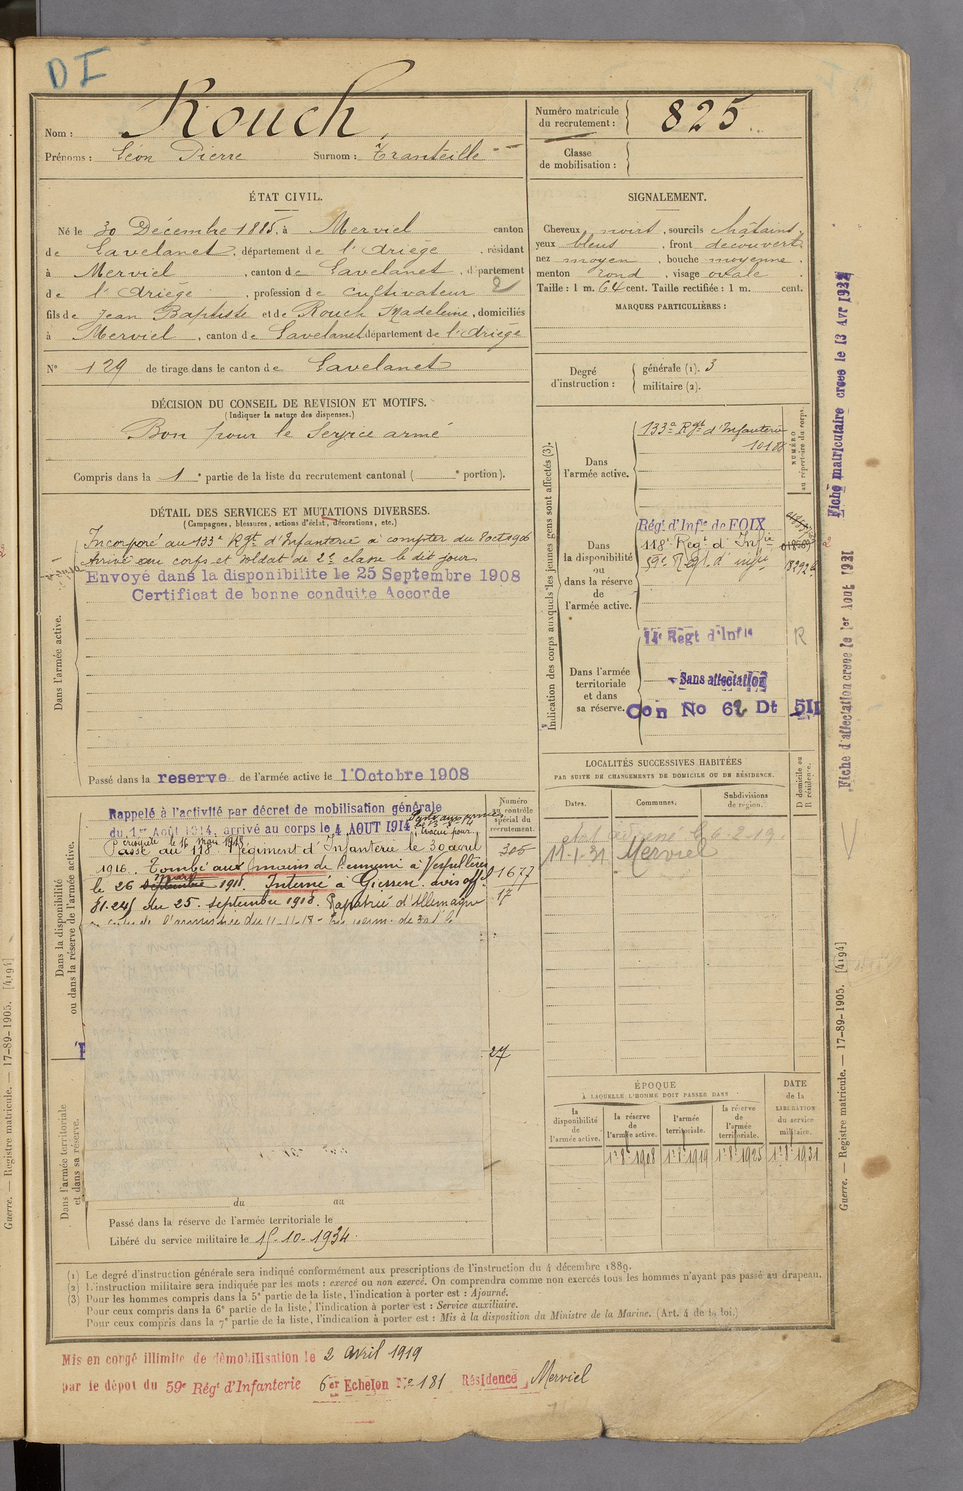 DI
Nom : Rouch
Prénoms : Léon Pierre Surnom : Tranteille
Numéro matricule du recrutement : 825
Classe de mobilisation :
ÉTAT CIVIL.
Né le 30 Décembre 1885, à Merviel canton
de Lavelanet, département de l'Ariège, résidant
à Merviel, canton de Lavelanet, département
de l'Ariège, profession de cultivateur 2
fils de Jean Baptiste et de Rouch Madeleine, domiciliés
à Merviel, canton de Lavelanet département de l'Ariège
N° 129 de tirage dans le canton de Lavelanet
DÉCISION DU CONSEIL DE REVISION ET MOTIFS.
(Indiquer la nature des dispenses.)
Bon pour le Service armé
Compris dans la 1e partie de la liste du recrutement cantonal ( e portion).
DÉTAIL DES SERVICES ET MUTATIONS DIVERSES.
(Campagnes, blessures, actions d'éclat, décorations, etc.)
Incorporé au 133e Rgt d'Infanterie à compter du 8 oct 1906
Arrivé au corps et soldat de 2e classe le dit jour
Envoyé dans la disponibilité le 25 Septembre 1908
Certificat de bonne conduite Accordé
Dans l'armée active.
Passé dans la reserve de l'armée active le 1er Octobre 1908
Rappelé à l'activité par décret de mobilisation générale
du 1er Août 1914, arrivé au corps le 4 AOUT 1914
Passé au 118 Régiment d'Infanterie le 30 avril
1916. Tombé aux mains de l'ennemi à
le 26 septembre 1918. Interné à Giessen. avis off.
du 25. septembre 1918. Rapatrié d'Allemagne
Numéro au contrôle spécial du recrutement.
305
1677
17
27
Dans la disponibilité ou dans la réserve de l'armée active.
Dans l'armée territoriale et dans sa réserve.
du au
Passé dans la réserve de l'armée territoriale le
Libéré du service militaire le 15-10-1934
SIGNALEMENT.
Cheveux noirs, sourcils châtains,
yeux bleus, front découvert
nez moyen, bouche moyenne,
menton rond, visage ovale
Taille : 1 m. 64 cent. Taille rectifiée : 1 m. cent.
MARQUES PARTICULIÈRES :
Degré d'instruction : générale (1). 3
militaire (2).
Indication des corps auxquels les jeunes gens sont affectés (3).
NUMÉRO au répertoire du corps.
Dans l'armée active.
133e Rgt d'Infanterie
Dans la disponibilité ou dans la réserve de l'armée active.
Rég. d'Infie de FOIX
118e Régt d'Infie
59e Régt. d'infie
Dans l'armée territoriale et dans sa réserve.
14e Regt d'Infie
R
Sans affectation
Con No 62 Dt 5II
LOCALITÉS SUCCESSIVES HABITÉES
PAR SUITE DE CHANGEMENTS DE DOMICILE OU DE RÉSIDENCE.
Dates. Communes. Subdivisions de region. D domicile ou R résidence.
11-1-31 Merviel
ÉPOQUE
À LAQUELLE L'HOMME DOIT PASSER DANS
DATE de la LIBÉRATION du service militaire.
la disponibilité de l'armée active. la réserve de l'armée active. l'armée territoriale. la réserve de l'armée territoriale.
1er 8e 1908 1er 8e 1919 1er 8e 1925 1er 8e 1931
Fiche matriculaire créée le 13 Avr 1932
Fiche d'affectation créée le 1er Août 1931
Guerre. — Registre matricule. — 17-89-1905. [4194]
Guerre. — Registre matricule. — 17-89-1905. [4194]
(1) Le degré d'instruction générale sera indiqué conformément aux prescriptions de l'instruction du 4 décembre 1889.
(2) L'instruction militaire sera indiquée par les mots : exercé ou non exercé. On comprendra comme non exercés tous les hommes n'ayant pas passé au drapeau.
(3) Pour les hommes compris dans la 5e partie de la liste, l'indication à porter est : Ajourné.
Pour ceux compris dans la 6e partie de la liste, l'indication à porter est : Service auxiliaire.
Pour ceux compris dans la 7e partie de la liste, l'indication à porter est : Mis à la disposition du Ministre de la Marine. (Art. 4 de la loi.)
Mis en congé illimité de démobilisation le 2 avril 1919
par le dépôt du 59e Régt d'Infanterie 6er Echelon N° 181 Résidence Merviel